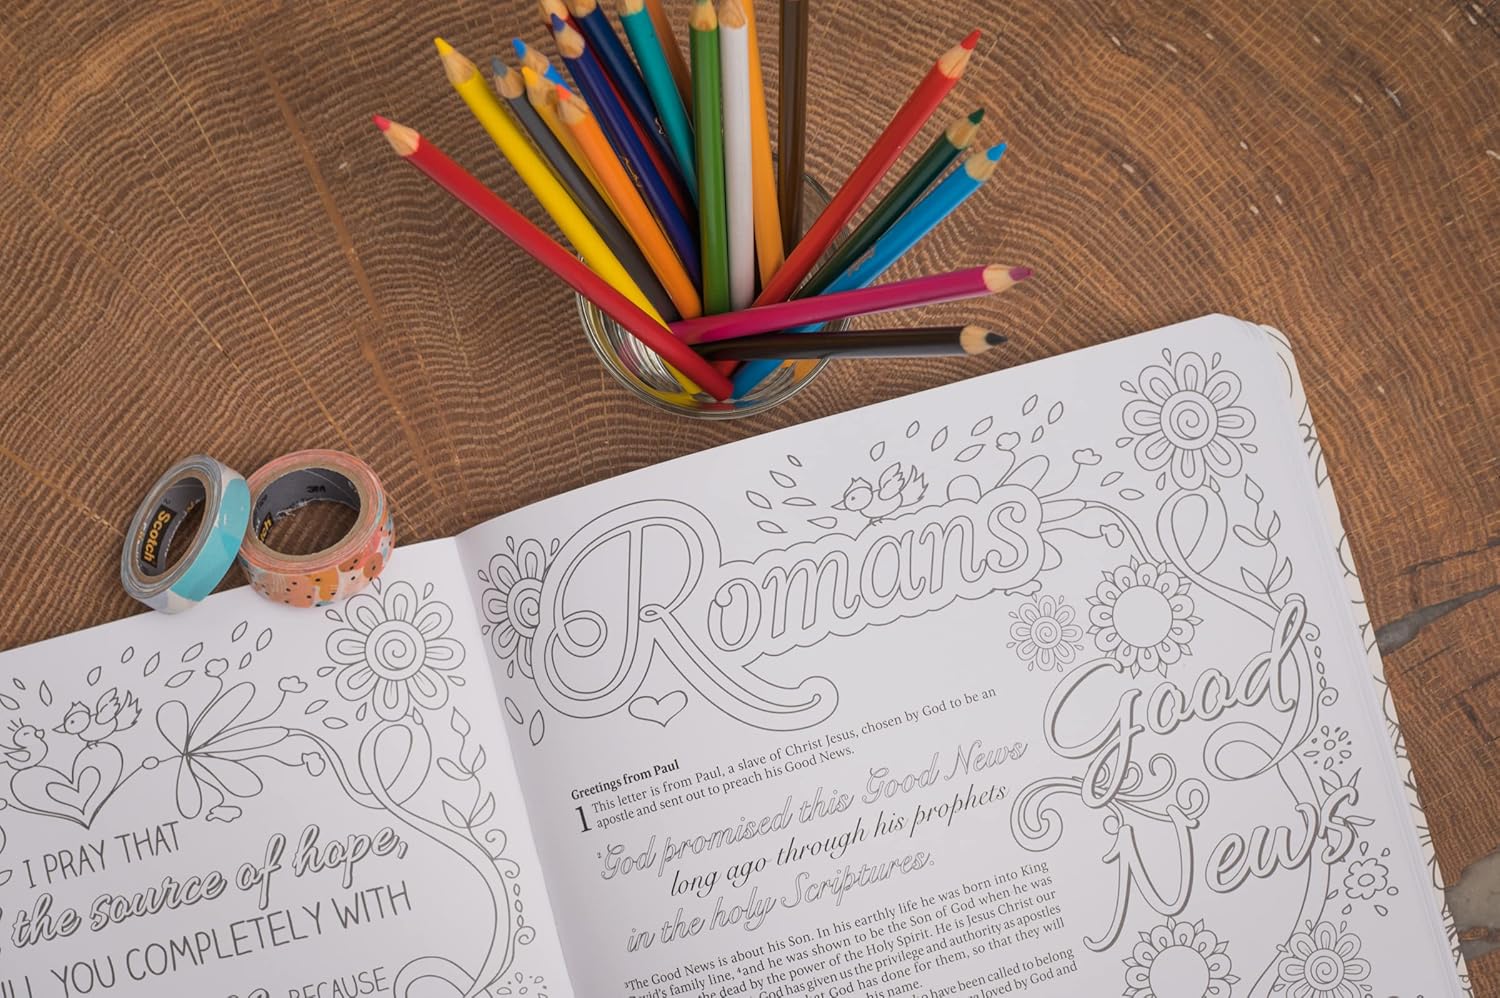 Scotch
3M
I PRAY THAT
the source of hope,
YOU COMPLETELY WITH
BECAUSE
Romans
Good
News
Greetings from Paul
1 This letter is from Paul, a slave of Christ Jesus, chosen by God to be an
apostle and sent out to preach his Good News.
²God promised this Good News
long ago through his prophets
in the holy Scriptures.
³The Good News is about his Son. In his earthly life he was born into King
David's family line, ⁴and he was shown to be the Son of God when he was
the dead by the power of the Holy Spirit. He is Jesus Christ our
God has given us the privilege and authority as apostles
God has done for them, so that they will
his name.
have been called to belong
loved by God and